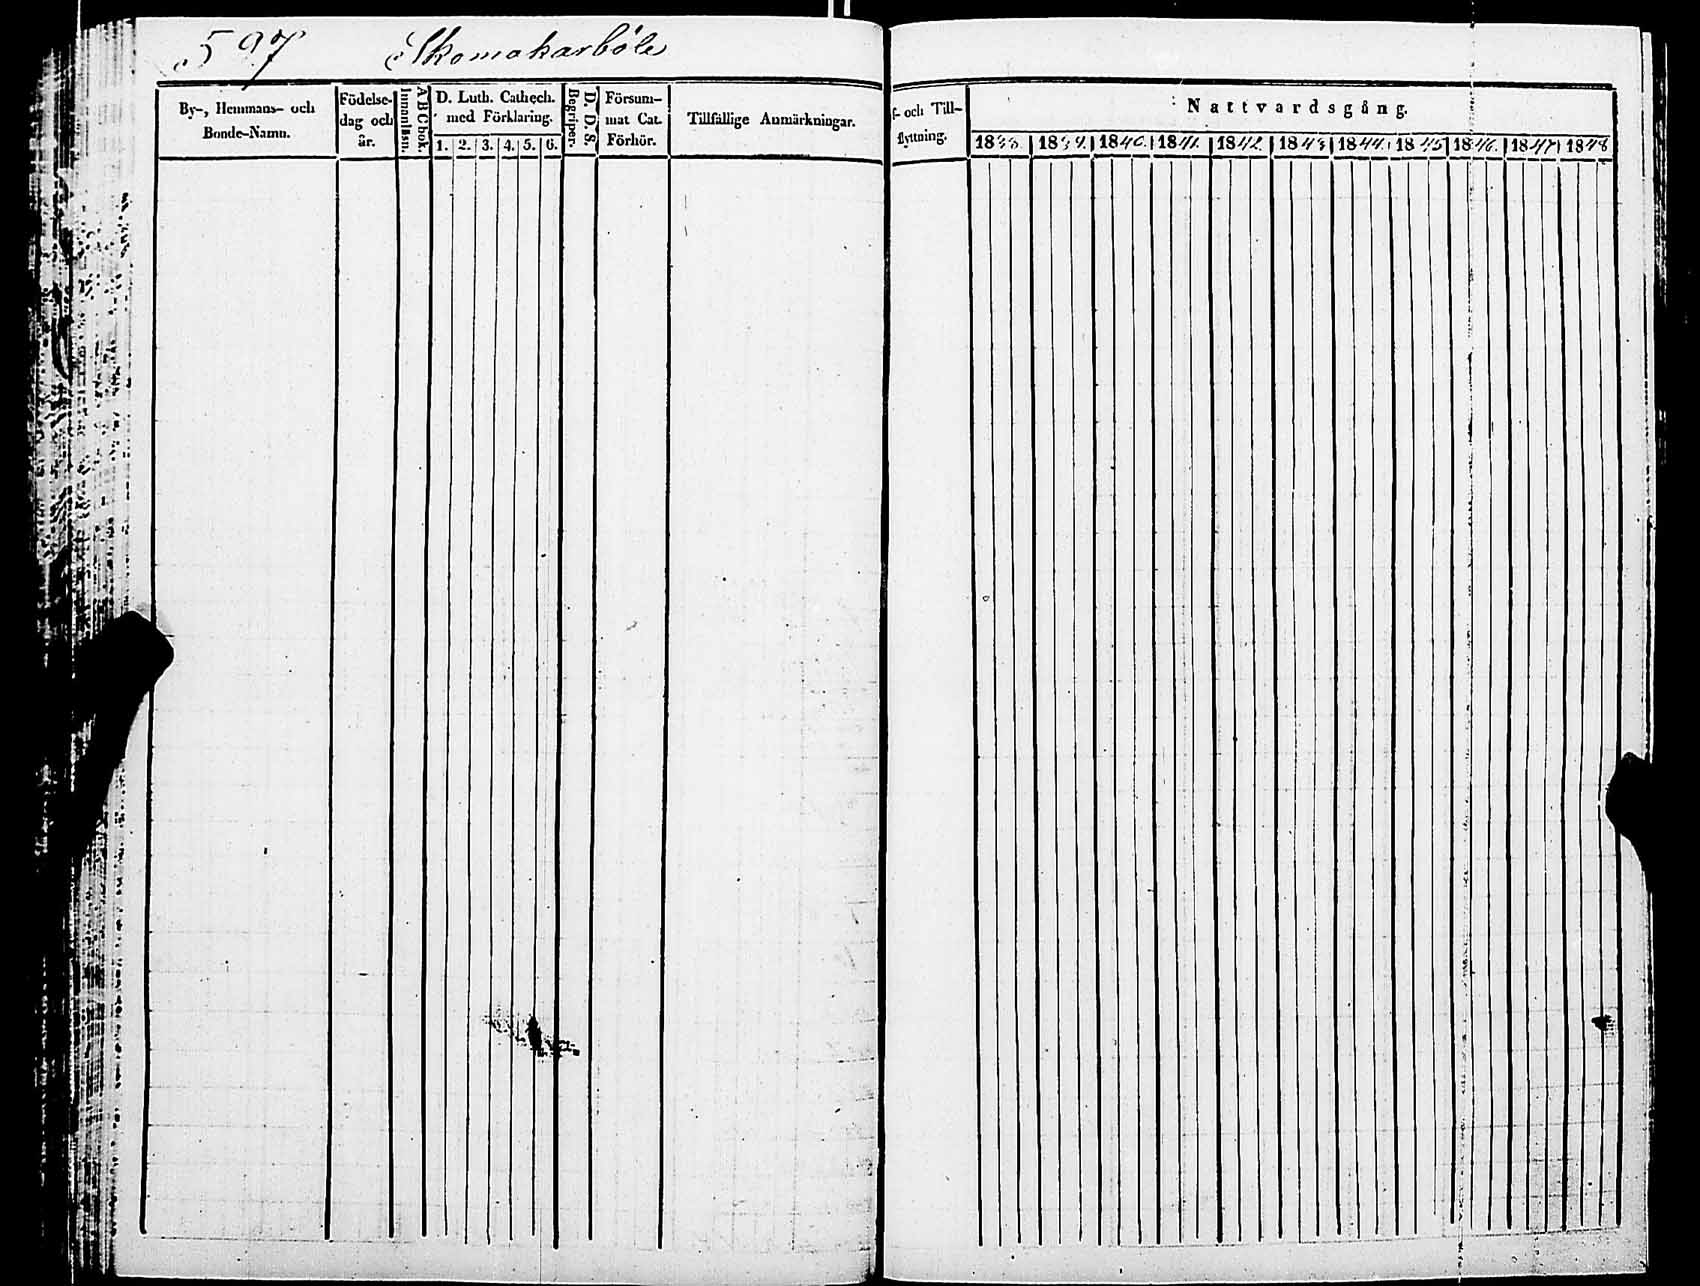 597 Skomakarböle
By-, Hemmans- och
Bonde-Namn.
Födelse-
dag och
år.
Innanläsn.
A B C bok.
D. Luth. Cathech.
med Förklaring.
1. 2. 3. 4. 5. 6.
Begriper.
D. D. S.
Försum-
mat Cat.
Förhör.
Tillfällige Anmärkningar.
f- och Till-
flyttning.
Nattvardsgång.
1838. 1839. 1840. 1841. 1842 1843 1844. 1845 1846. 1847 1848